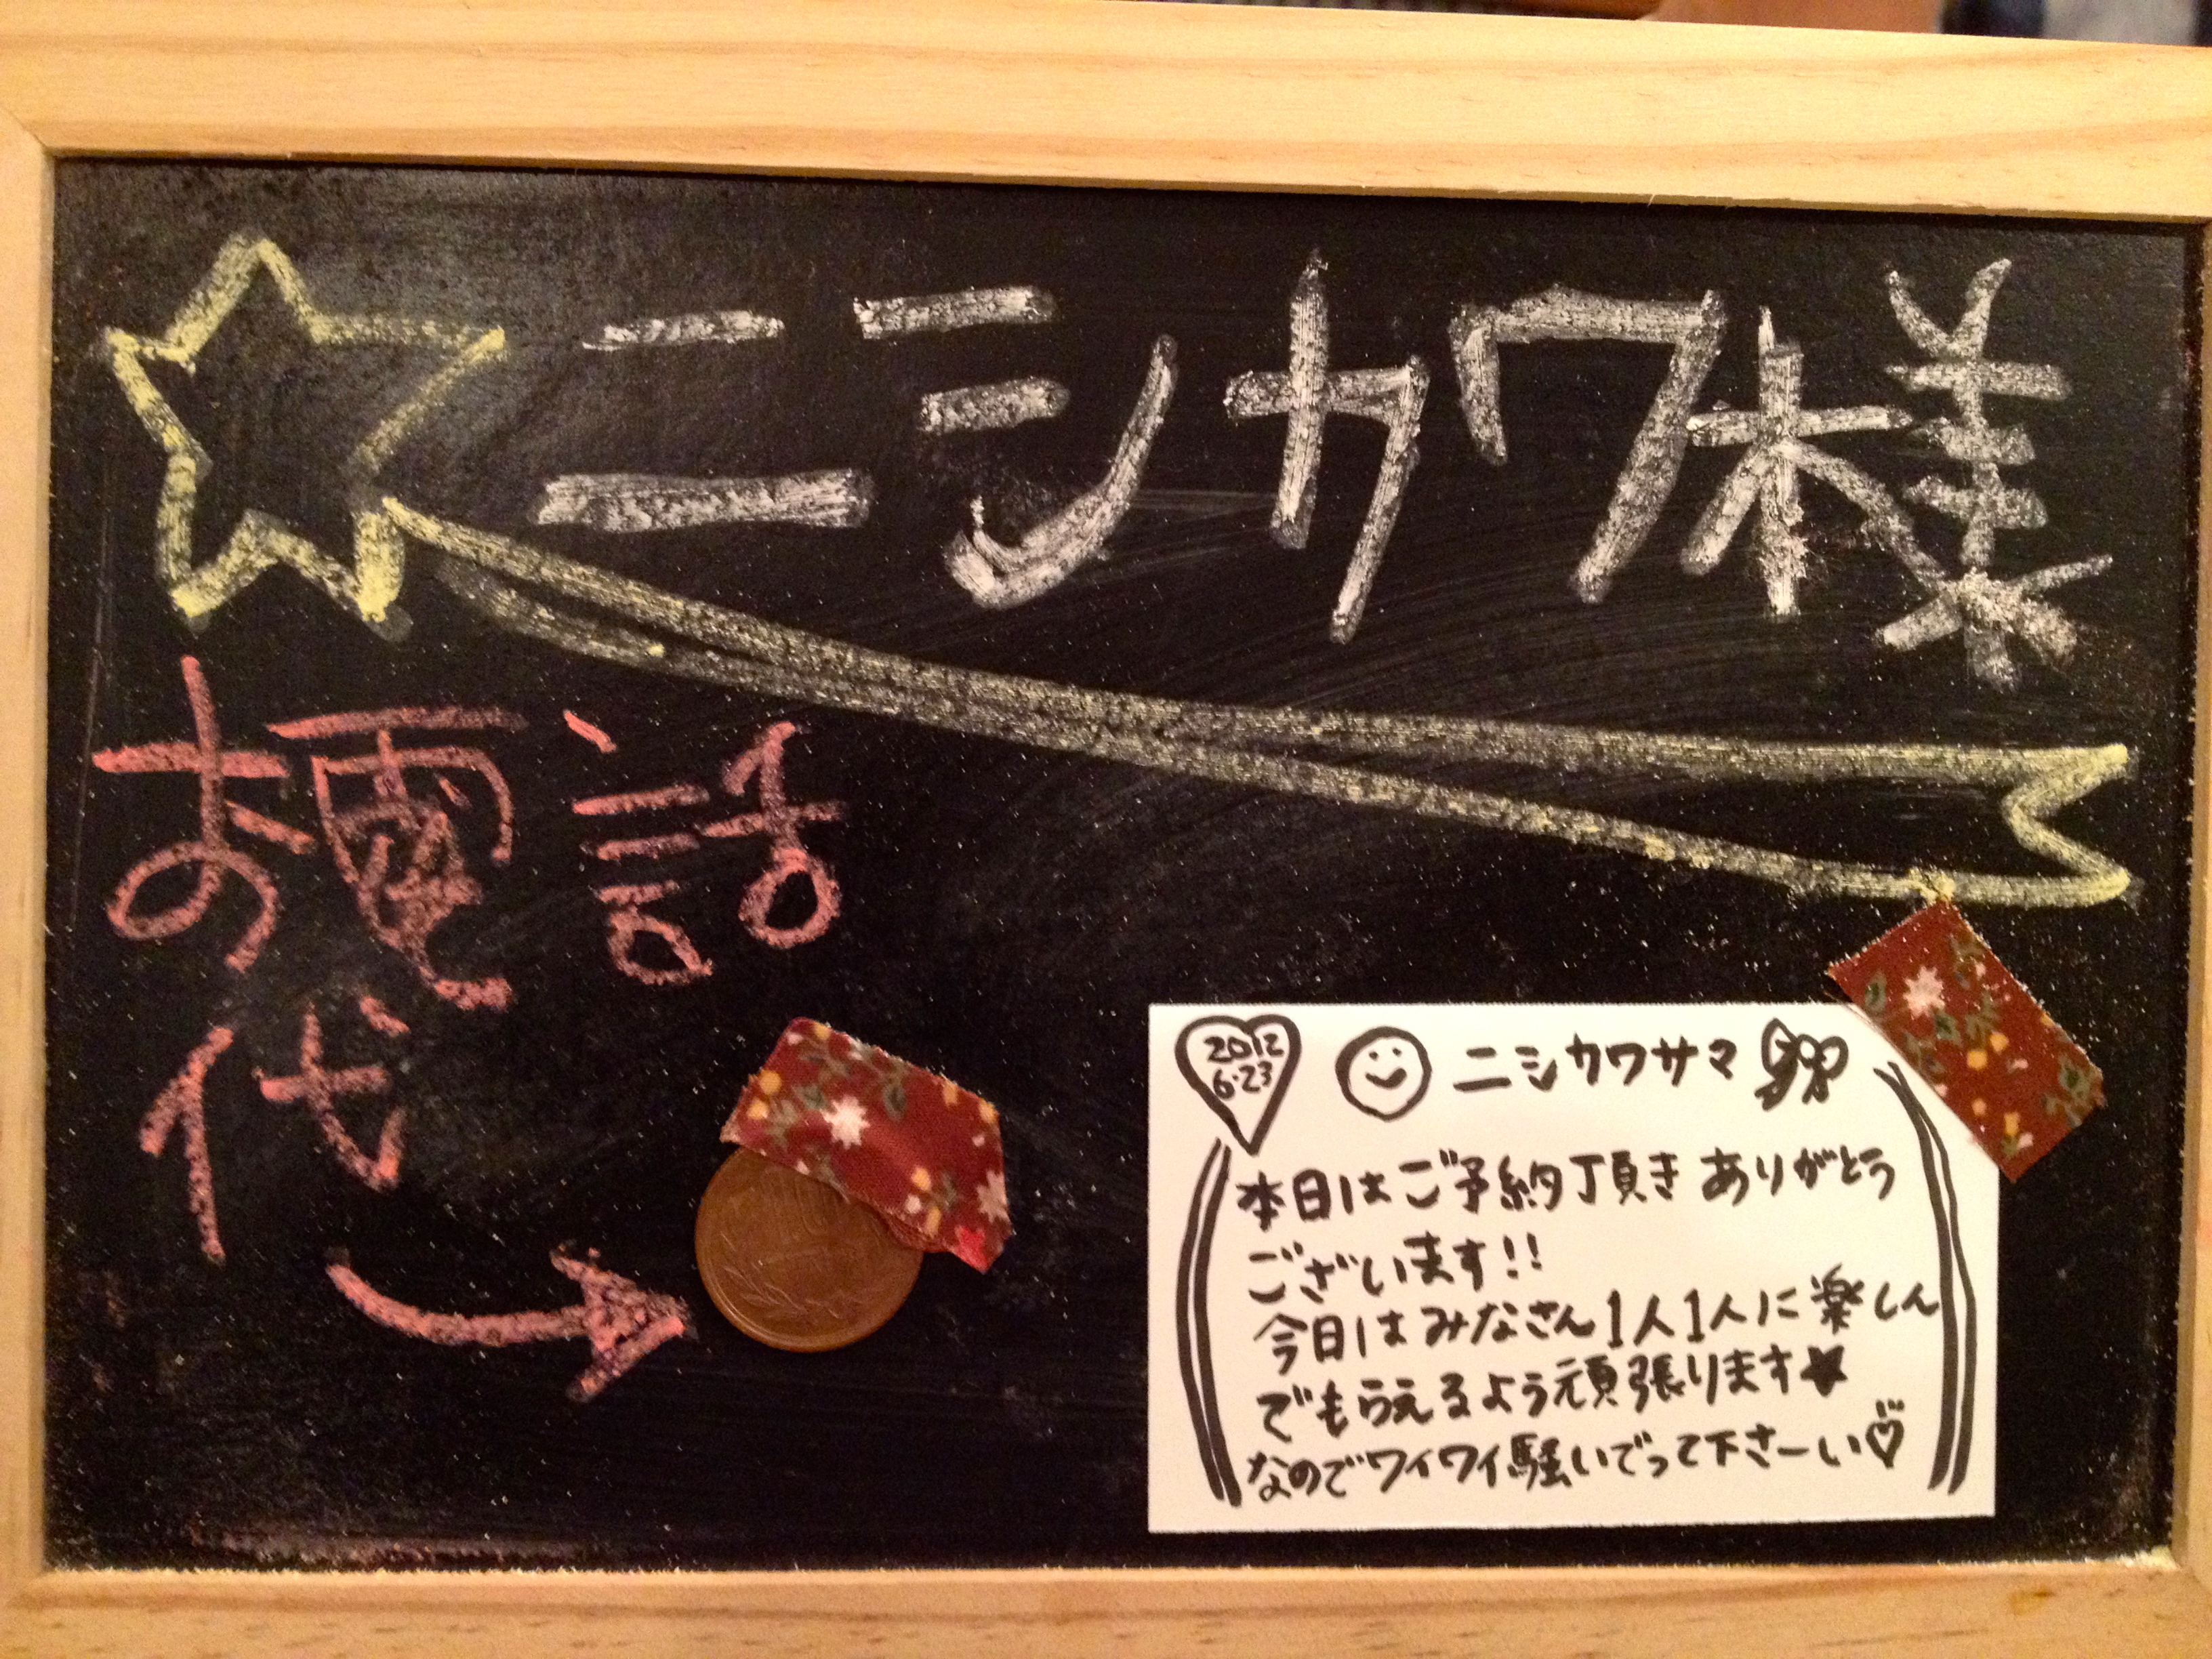 ニシカワ様
お電話
代
2012
6.23
ニシカワサマ
本日はご予約頂き ありがとう
ございます!!
今日はみなさん1人1人に楽しん
でもらえるよう頑張ります★
なのでワイワイ騒いでって下さーい♡